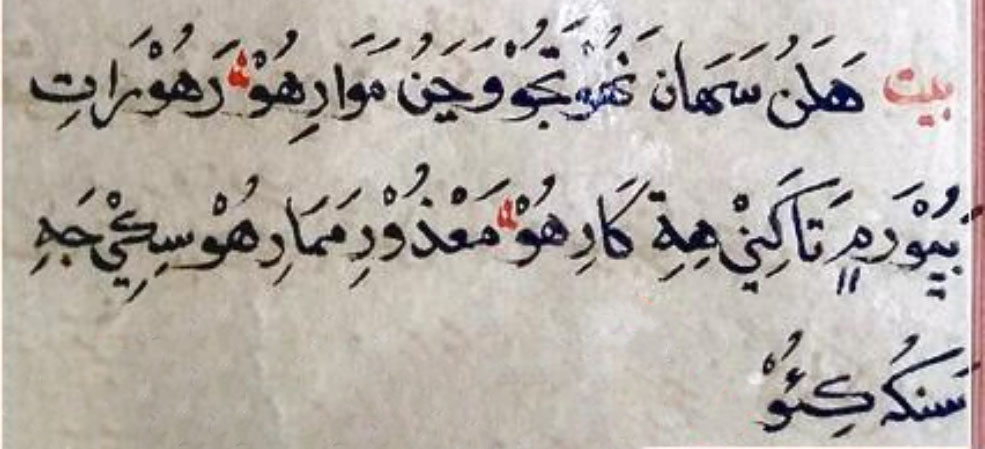 بيت هَلَنُ سَمَهَان نَهُ تجُوْ وَجَنُ مَوَارِ هُوْ رَهُوْ رَاتِ
بِيُوْرَمِ تَاكَنِيْ هِةِ كَارِ هُوْ مَعْذُوْرِ مَمَارِ هُوْ سِكِيْ جَهِ
سَنكُه كِئوُ